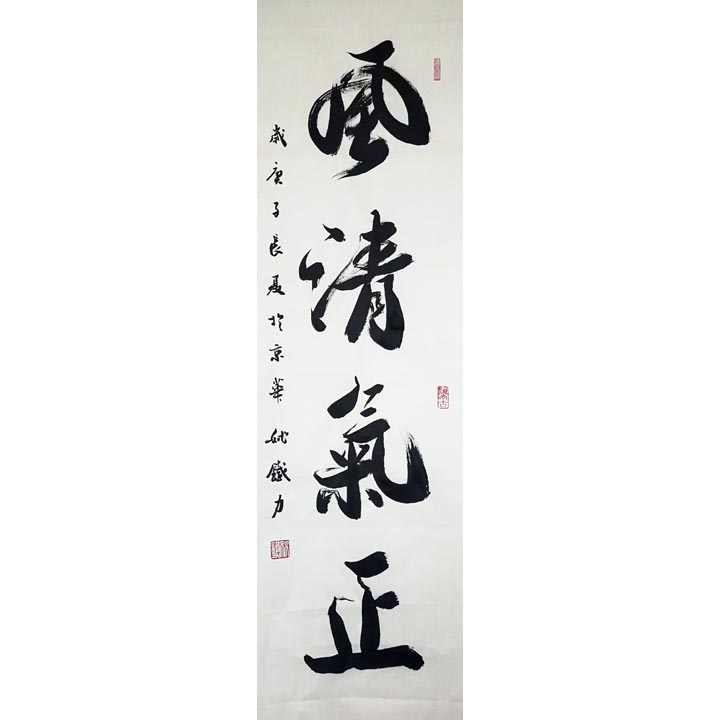 風清氣正
歲庚子長夏於京華姚鐵力